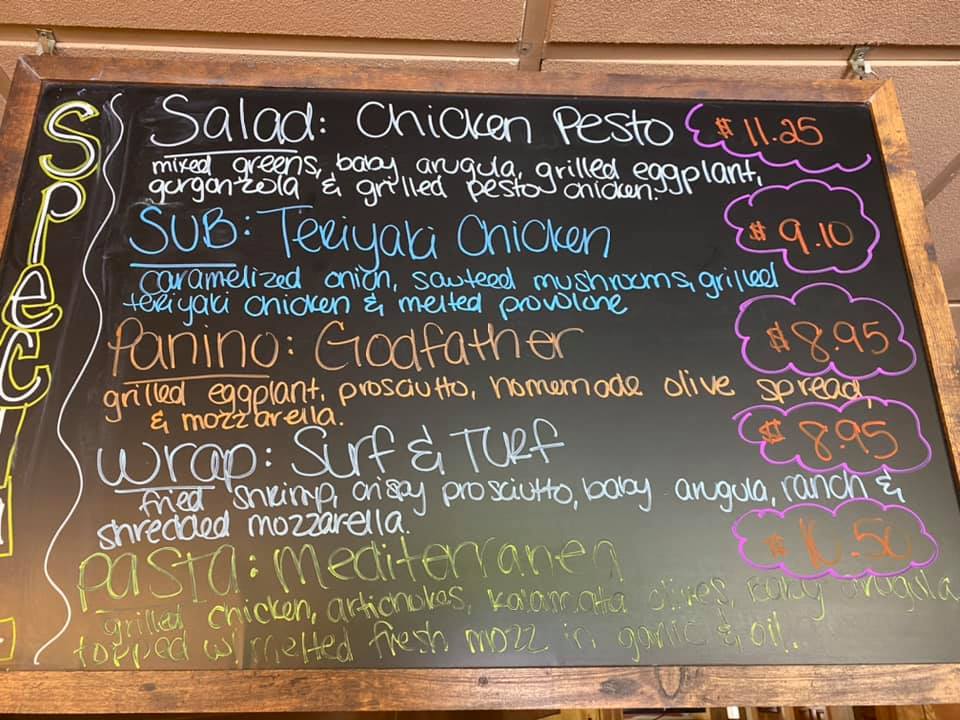 Special
Salad: Chicken Pesto $ 11.25
mixed greens, baby arugula, grilled eggplant,
gorgonzola & grilled pesto chicken.
SUB: Teriyaki Chicken $ 9.10
caramelized onion, sauteed mushrooms, grilled
teriyaki chicken & melted provolone
Panino: Godfather $8.95
grilled eggplant, prosciutto, homemade olive spread,
& mozzarella.
Wrap: Surf & Turf $8.95
fried shrimp, crispy prosciutto, baby arugula, ranch &
shredded mozzarella.
Pasta: Mediterranea $10.50
grilled chicken, artichokes, kalamatta olives, baby arugula
topped w/ melted fresh mozz in garlic & oil.